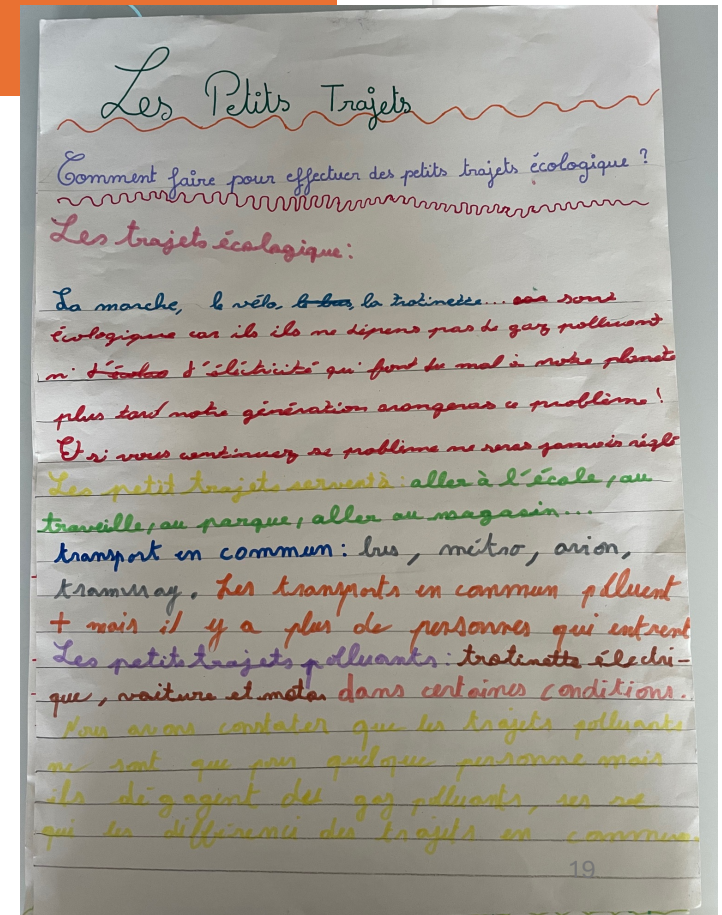 Les Petits Trajets
Comment faire pour effectuer des petits trajets écologique ?
Les trajets écologique :
La marche, le vélo, le bus, la trotinette... sont
écologique car ils ils ne dépens pas de gaz polluant
ni d'éléctricité qui font du mal à notre planete
plus tard notre génération arangeras ce problème !
Et si vous continuez se problème ne seras jamais réglé
Les petit trajets servent à : aller à l'école, au
traveille, au parque, aller au magasin...
transport en commun : bus, métro, avion,
tramway. Les transports en commun polluent
+ mais il y a plus de personnes qui entrent
Les petits trajets polluants : trotinette éléctri-
que, voiture et motos dans certaines conditions.
Nous avons constater que les trajets polluants
ne sont que pour quelque personne mais
ils dégagent des gaz polluants, ses se
qui les différenci des trajets en commun.
19